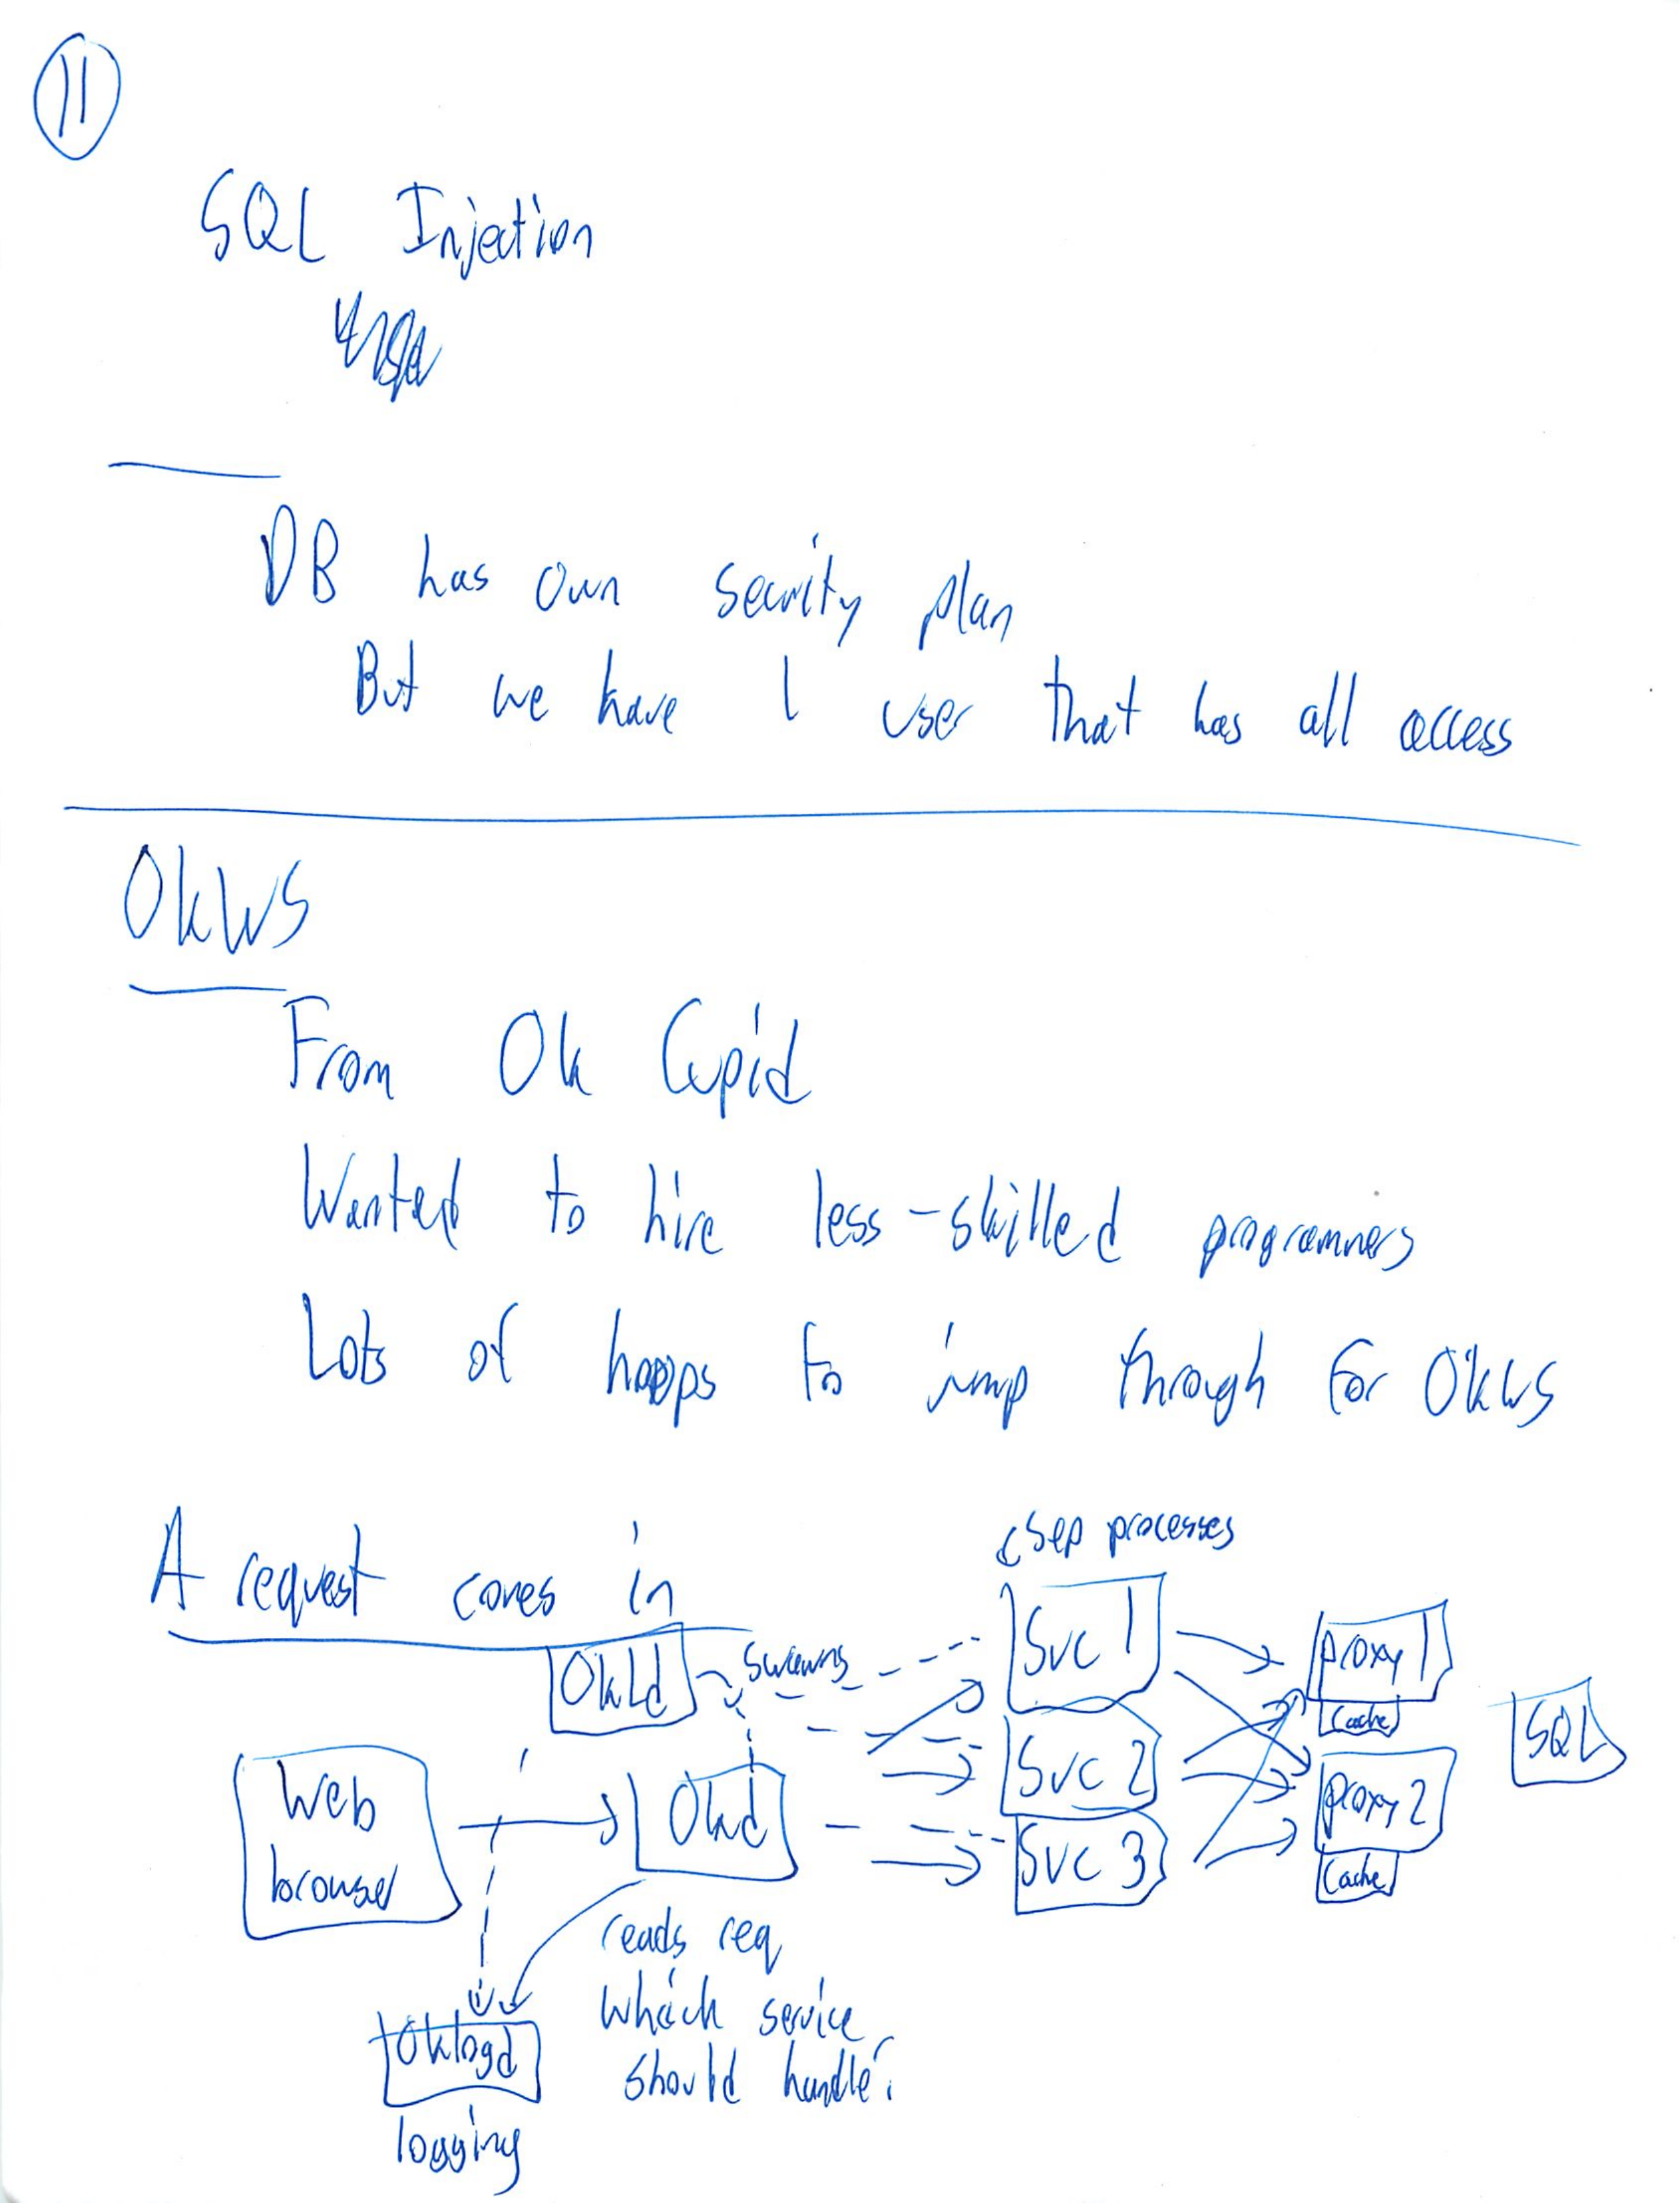 11
SQL Injection
DB has own security plan
But we have 1 user that has all access
OkWS
From Ok Cupid
Wanted to hire less-skilled programmers
Lots of hoops to jump through for OkWS
A request comes in
Sep processes
OkLd
Svc 1
proxy 1
Cache
SQL
Web
browser
Okd
Svc 2
proxy 2
Cache
Svc 3
reads req
which service
should handle?
Oklogd
logging